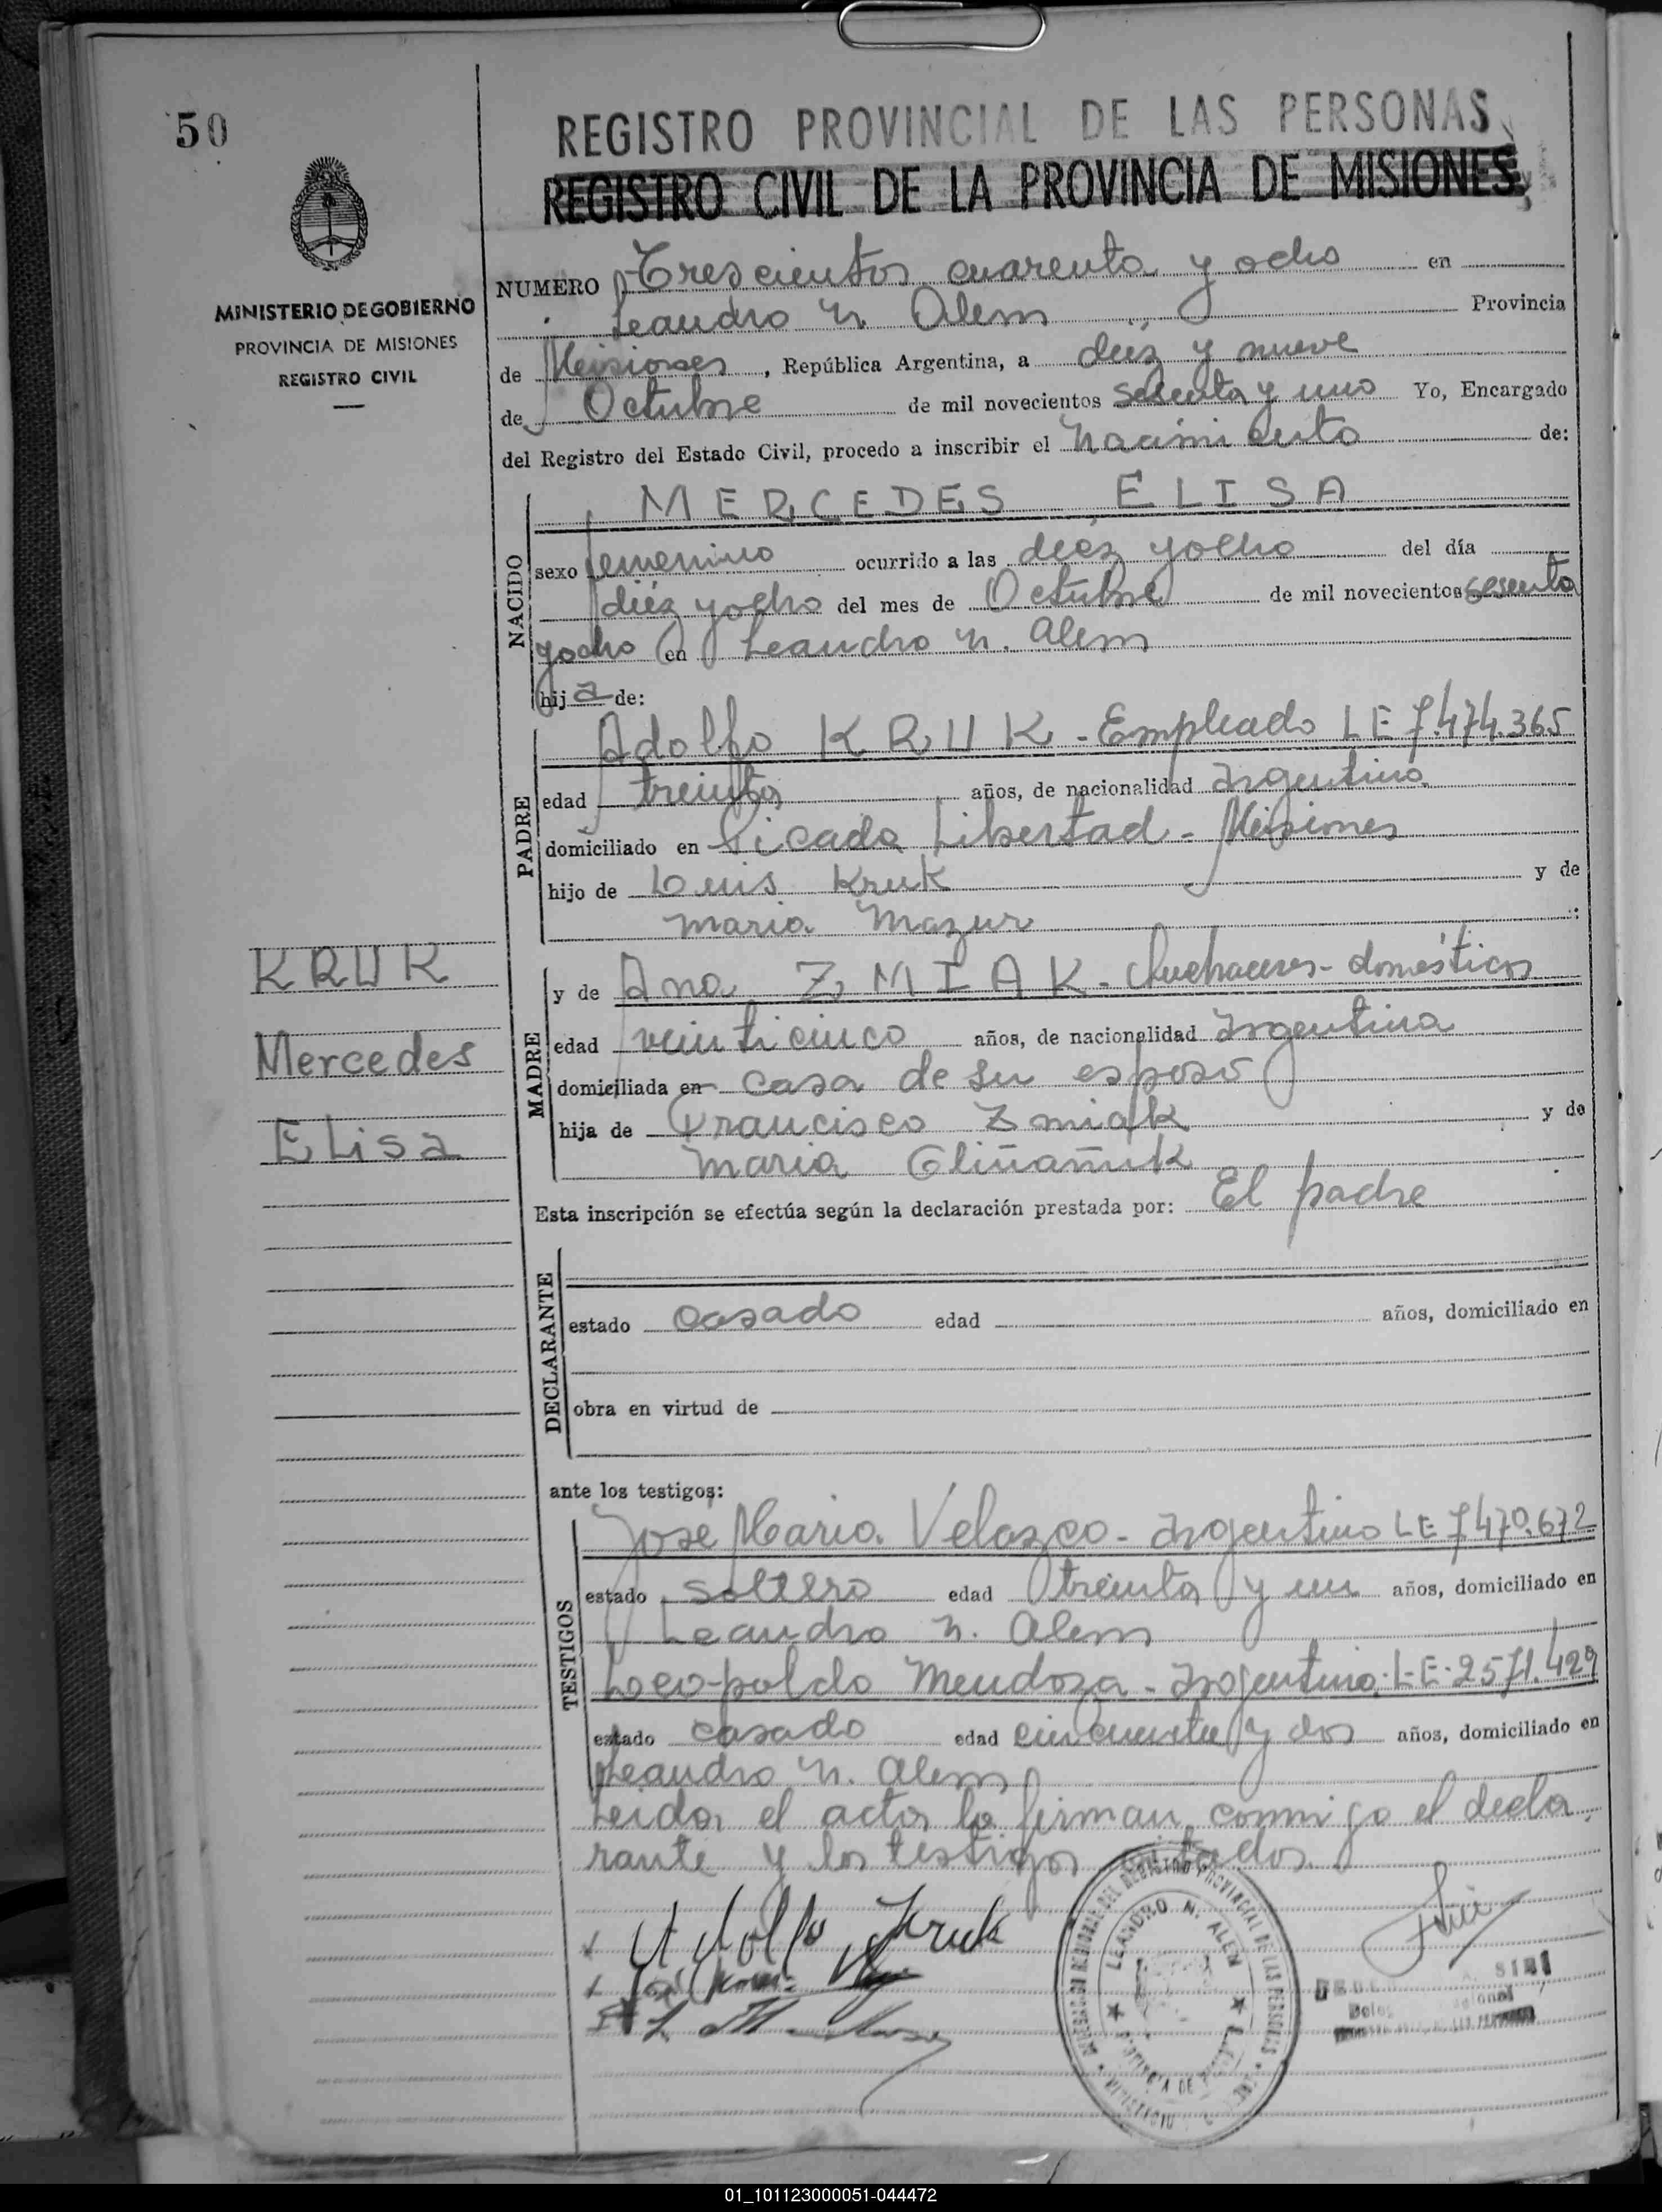 50
REGISTRO PROVINCIAL DE LAS PERSONAS
REGISTRO CIVIL DE LA PROVINCIA DE MISIONES,
MINISTERIO DE GOBIERNO
PROVINCIA DE MISIONES
REGISTRO CIVIL
NUMERO Trescientos cuarenta y ocho en
Leandro N. Alem Provincia
de Misiones, República Argentina, a diez y nueve
de Octubre de mil novecientos sesenta y uno Yo, Encargado
del Registro del Estado Civil, procedo a inscribir el Nacimiento de:
NACIDO
MERCEDES ELISA
sexo femenino ocurrido a las diez y ocho del día
diez y ocho del mes de Octubre de mil novecientos sesenta
y ocho en Leandro N. Alem
hija de:
PADRE
Adolfo KRUK - Empleado LE 7.474.365
edad treinta años, de nacionalidad Argentina
domiciliado en Picada Libertad - Misiones
hijo de Luis Kruk y de
Maria Mazur
KRUK
Mercedes
Elisa
MADRE
y de Ana ZMIAK - Quehaceres - domésticos
edad veinticinco años, de nacionalidad Argentina
domiciliada en casa de su esposo
hija de Francisco Zmiak y de
Maria
Esta inscripción se efectúa según la declaración prestada por: El padre
DECLARANTE
estado casado edad años, domiciliado en
obra en virtud de
ante los testigos:
TESTIGOS
José Maria Velazco - Argentino LE 7470.672
estado soltero edad treinta y un años, domiciliado en
Leandro N. Alem
Leopoldo Mendoza - Argentino. L-E- 2571.429
estado casado edad cincuenta y dos años, domiciliado en
Leandro N. Alem
Leida el acta la firman conmigo el decla
rante y los testigos citados.
Adolfo Kruk
LEANDRO N. ALEM
01_101123000051-044472